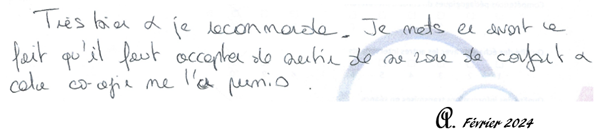 Très bien & je recommande. Je mets en avant ce
fait qu'il faut accepter de sortir de sa zone de confort &
cela me l'a permis.
Février 2024